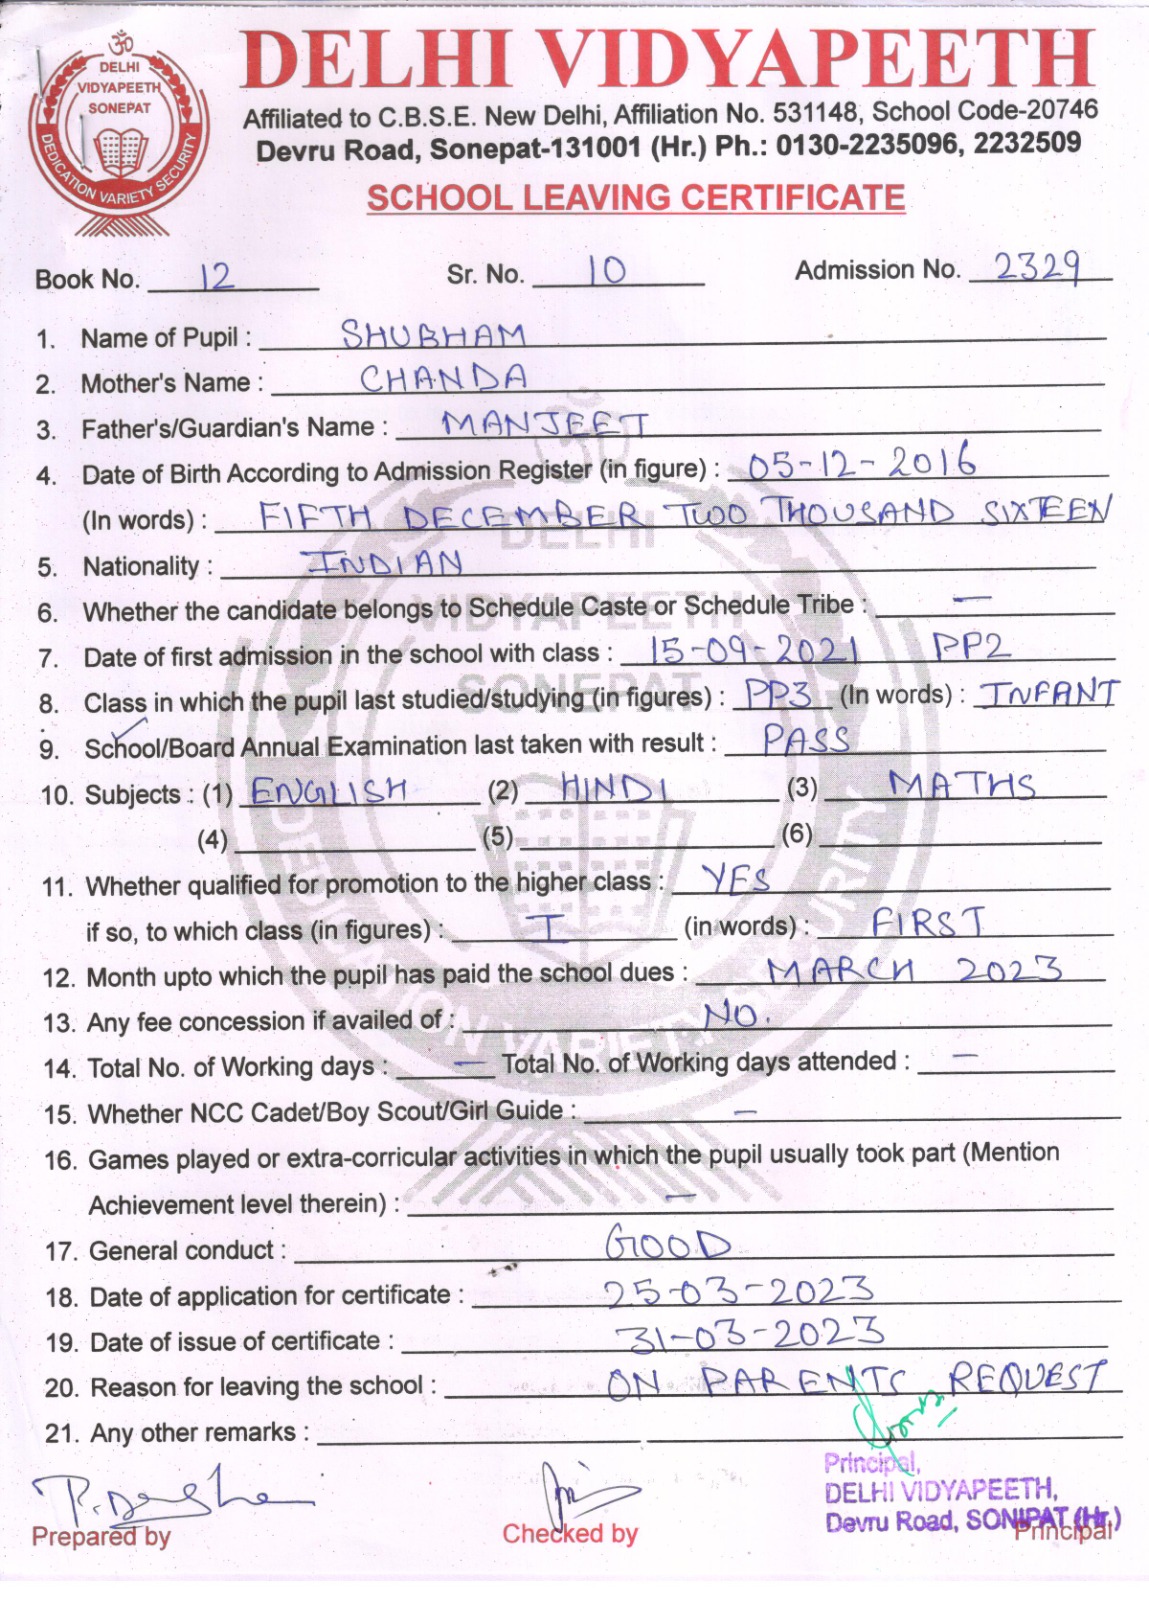 ॐ
DELHI
VIDYAPEETH
SONEPAT
DEDICATION VARIETY SECURITY
DELHI VIDYAPEETH
Affiliated to C.B.S.E. New Delhi, Affiliation No. 531148, School Code-20746
Devru Road, Sonepat-131001 (Hr.) Ph.: 0130-2235096, 2232509
SCHOOL LEAVING CERTIFICATE
Book No. 12 Sr. No. 10 Admission No. 2329
1. Name of Pupil : SHUBHAM
2. Mother's Name : CHANDA
3. Father's/Guardian's Name : MANJEET
4. Date of Birth According to Admission Register (in figure) : 05-12-2016
(In words) : FIFTH DECEMBER TWO THOUSAND SIXTEEN
5. Nationality : INDIAN
6. Whether the candidate belongs to Schedule Caste or Schedule Tribe : —
7. Date of first admission in the school with class : 15-09-2021 PP2
8. Class in which the pupil last studied/studying (in figures) : PP3 (In words) : INFANT
9. School/Board Annual Examination last taken with result : PASS
10. Subjects : (1) ENGLISH (2) HINDI (3) MATHS
(4) (5) (6)
11. Whether qualified for promotion to the higher class : YES
if so, to which class (in figures) : I (in words) : FIRST
12. Month upto which the pupil has paid the school dues : MARCH 2023
13. Any fee concession if availed of : NO.
14. Total No. of Working days : — Total No. of Working days attended : —
15. Whether NCC Cadet/Boy Scout/Girl Guide : —
16. Games played or extra-corricular activities in which the pupil usually took part (Mention
Achievement level therein) : —
17. General conduct : GOOD
18. Date of application for certificate : 25-03-2023
19. Date of issue of certificate : 31-03-2023
20. Reason for leaving the school : ON PARENTS REQUEST
21. Any other remarks :
Principal,
DELHI VIDYAPEETH,
Devru Road, SONIPAT (Hr.)
Prepared by Checked by Principal